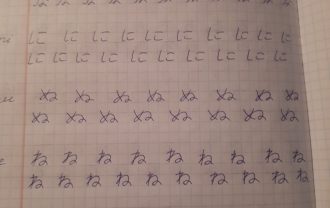 に に に に に に に に に
に に に に に に に に に に
ぬ ぬ ぬ ぬ ぬ ぬ ぬ ぬ
ぬ ぬ ぬ ぬ ぬ ぬ ぬ ぬ
ね ね ね ね ね ね ね ね ね
ね ね ね ね ね ね ね ね ね